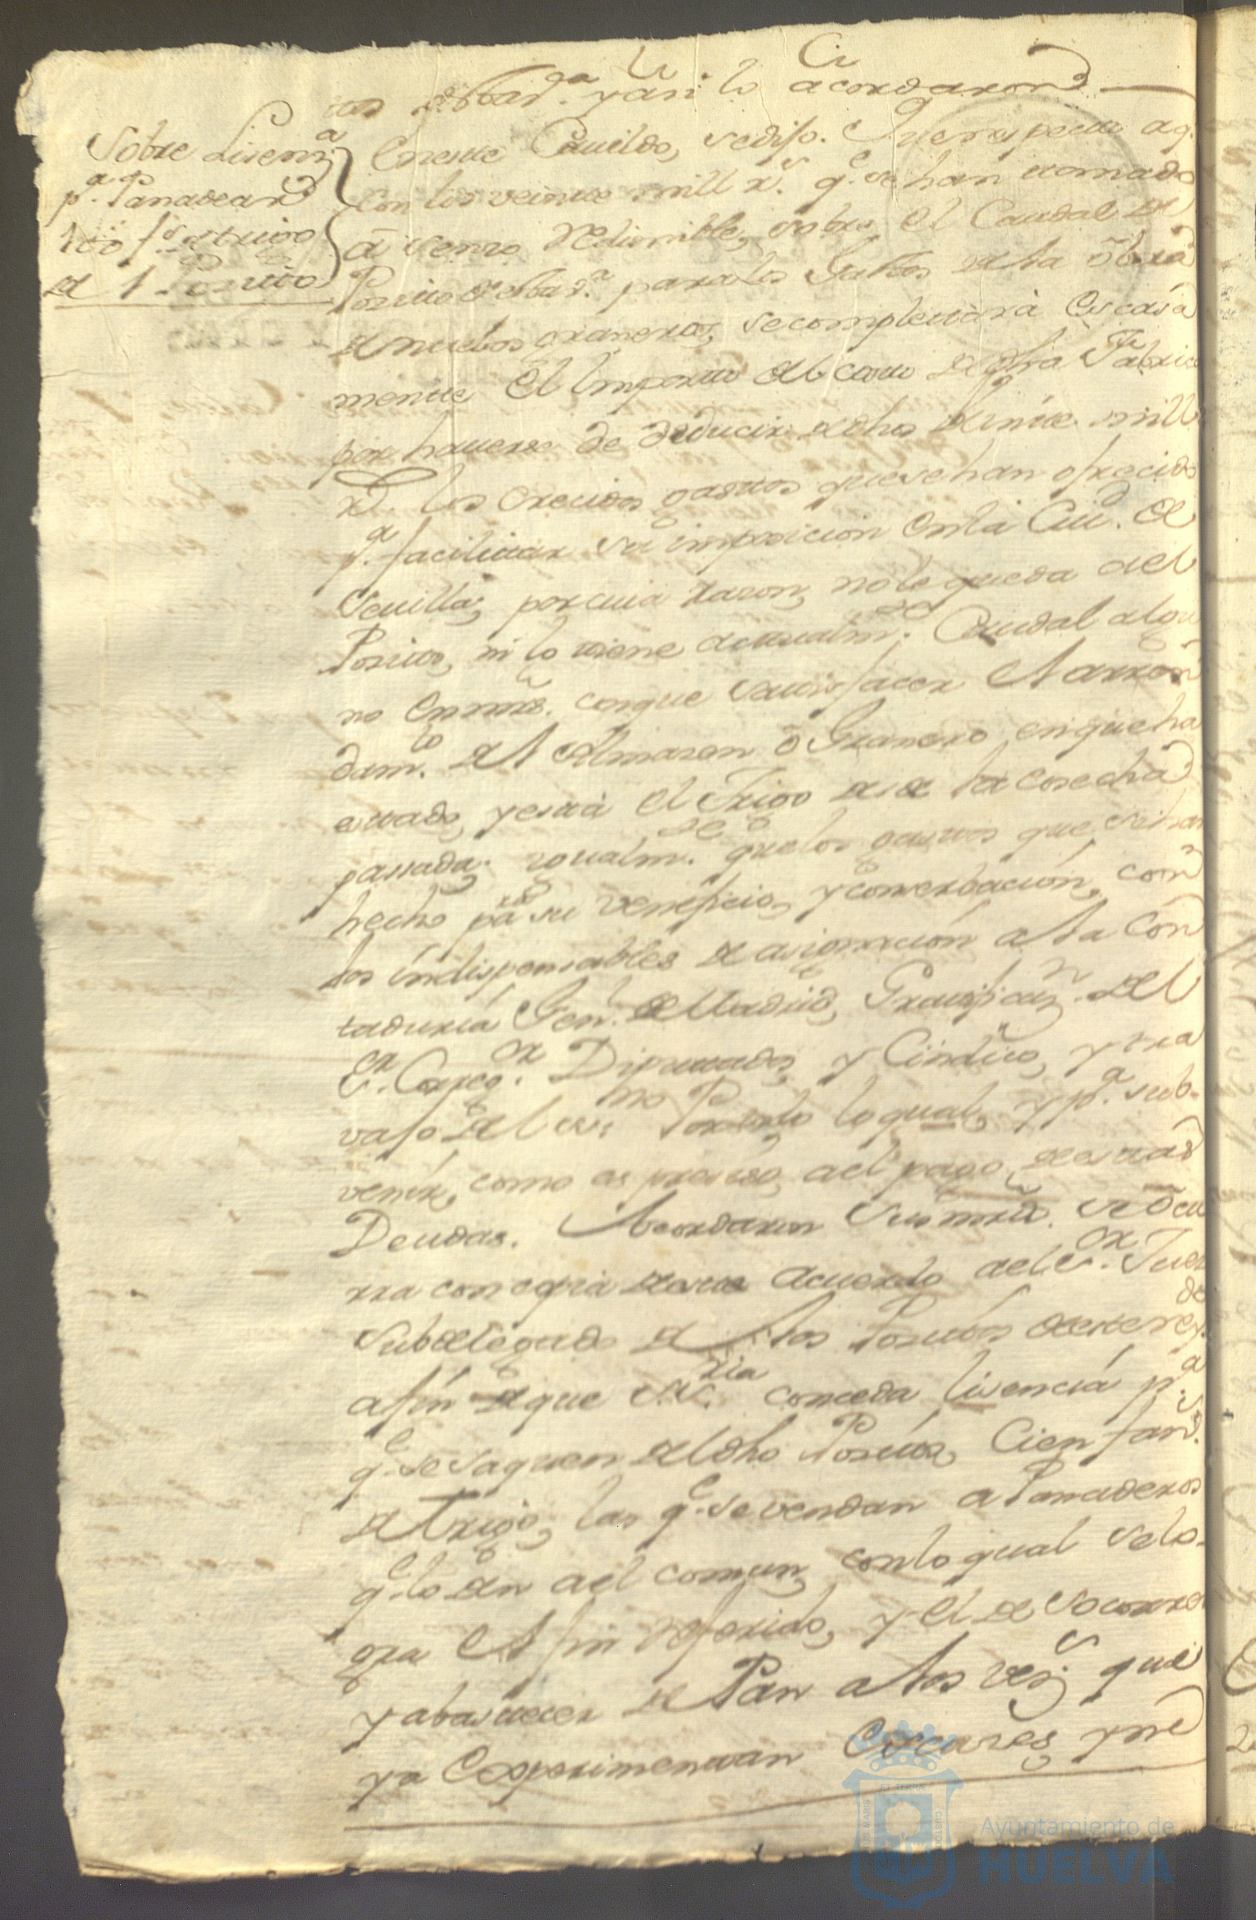 de esta v.ª y asi lo acordaron
Sobre Lisenz.ª
p.ª Panadear
100 f.s de trigo
del Posito
En este Cavildo, se dijo. Que respecto a q.
con los veinte mill r.s q.e se han tomado
a senzo redimible, sobre el Caudal del
Posito de esta v.ª para los gastos de la obra
de nuebos graneros, se completará escasa
mente el importe del costo de dha Fabrica
por haverse de deducir de dhos veinte mill
r.s los crecidos gastos que se han ofrecido
p.ª facilitar su imposicion en la Ciu.d de
Sevilla; por cuia razon, no le queda al
Posito, ni lo tiene actualm.te Caudal algu
no en mrs. con que satisfacer el arren
dam.to del Almazen ó Granero en que ha
estado, y está el Trigo desde la cosecha
passada; igualm.te que los gastos que se han
hecho para su veneficio, y conserbación, con
los indispensables de asignación a la Con
taduría Gen.l de Madrid, Gratificaz.n del
S.r Correg.or Diputados, y Cindico, y tra
vajo del es.no Por todo lo qual, y p.ª sub-
venir, como es preciso, al pago de estas
Deudas. Acordaron sus mrds. se ocu
rra con copia de este acuerdo al S.or Juez
Subdelegado de los Positos de este rey.do
a fin de que S.ria conceda lisencia p.ª
q.e se saquen del dho Posito, Cien fan.s
de Trigo, las q.e se vendan a Panaderos
q.e lo den al comun, con lo qual se lo-
gra el fin referido, y el de socorrer
y abastecer de Pan a los vez.s que
ya experimentan escases, y ne
Ayuntamiento de
HUELVA